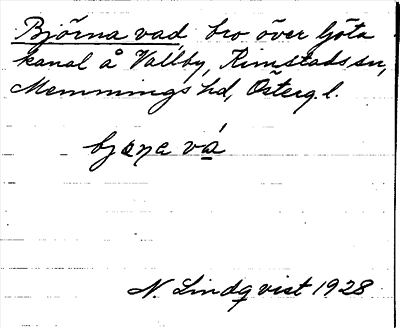 Björna vad, bro över Göta
kanal å Vallby, Rimstads sn,
Memmings hd, Österg. l.
bjɷɳa vá
N. Lindqvist 1928